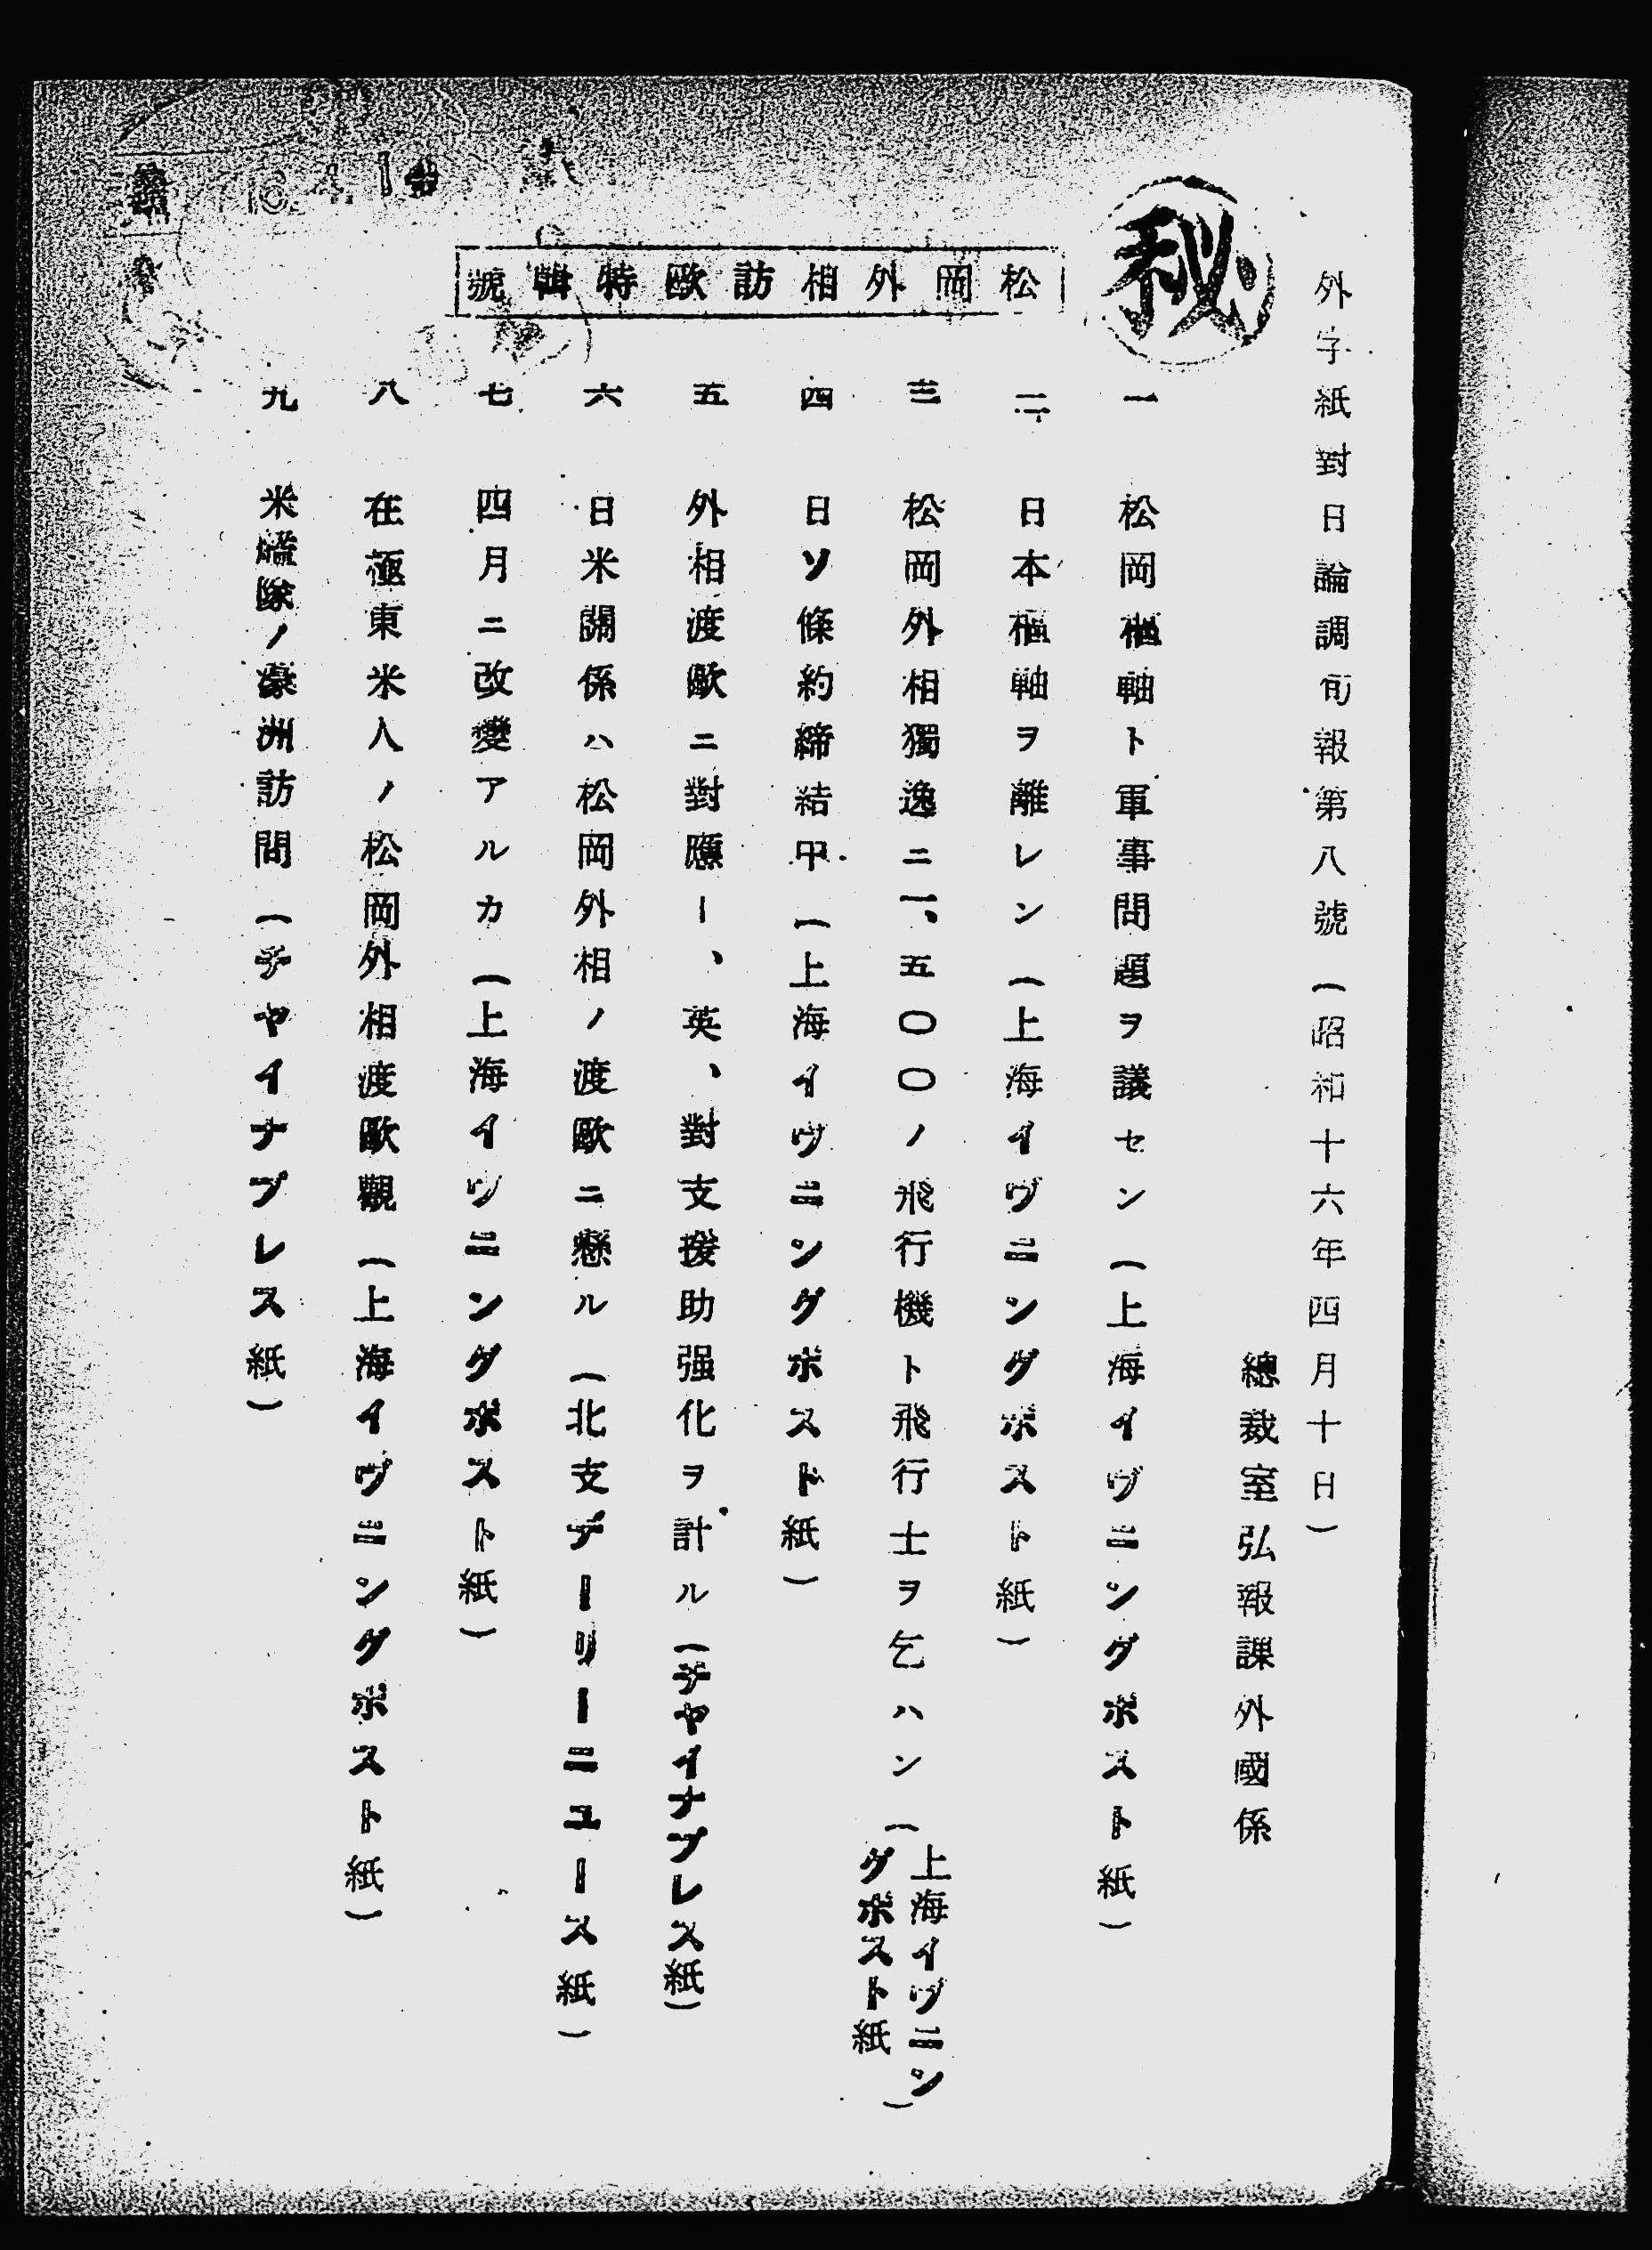 外字紙對日論調旬報第八號（昭和十六年四月十日）
總裁室弘報課外國係
秘
松岡外相訪歐特輯號
一　松岡樞軸ト軍事問題ヲ議セン（上海イヴニングポスト紙）
二　日本樞軸ヲ離レン（上海イヴニングポスト紙）
三　松岡外相獨逸ニ一、五〇〇ノ飛行機ト飛行士ヲ乞ハン（上海イヴニングポスト紙）
四　日ソ條約締結甲（上海イヴニングポスト紙）
五　外相渡歐ニ對應ー、英、對支援助强化ヲ計ル（チヤイナプレス紙）
六　日米關係ハ松岡外相ノ渡歐ニ懸ル（北支デーリーニユース紙）
七　四月ニ改變アルカ（上海イヴニングポスト紙）
八　在極東米人ノ松岡外相渡歐觀（上海イヴニングポスト紙）
九　米艦隊ノ濠洲訪問（チヤイナプレス紙）